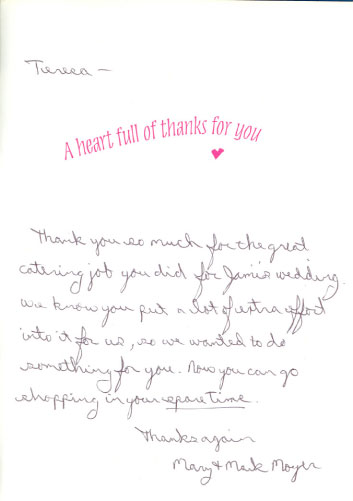 Tereca —
A heart full of thanks for you
Thank you so much for the great
catering job you did for Jami's wedding.
We know you put a lot of extra effort
into it for us, so we wanted to do
something for you. Now you can go
shopping in your spare time.
Thanks again
Mary & Mark Moyer